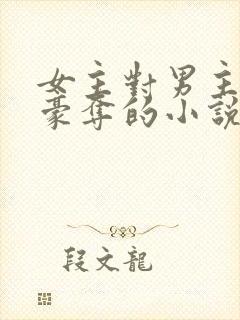 女主對男主
豪奪的小說
段文龍